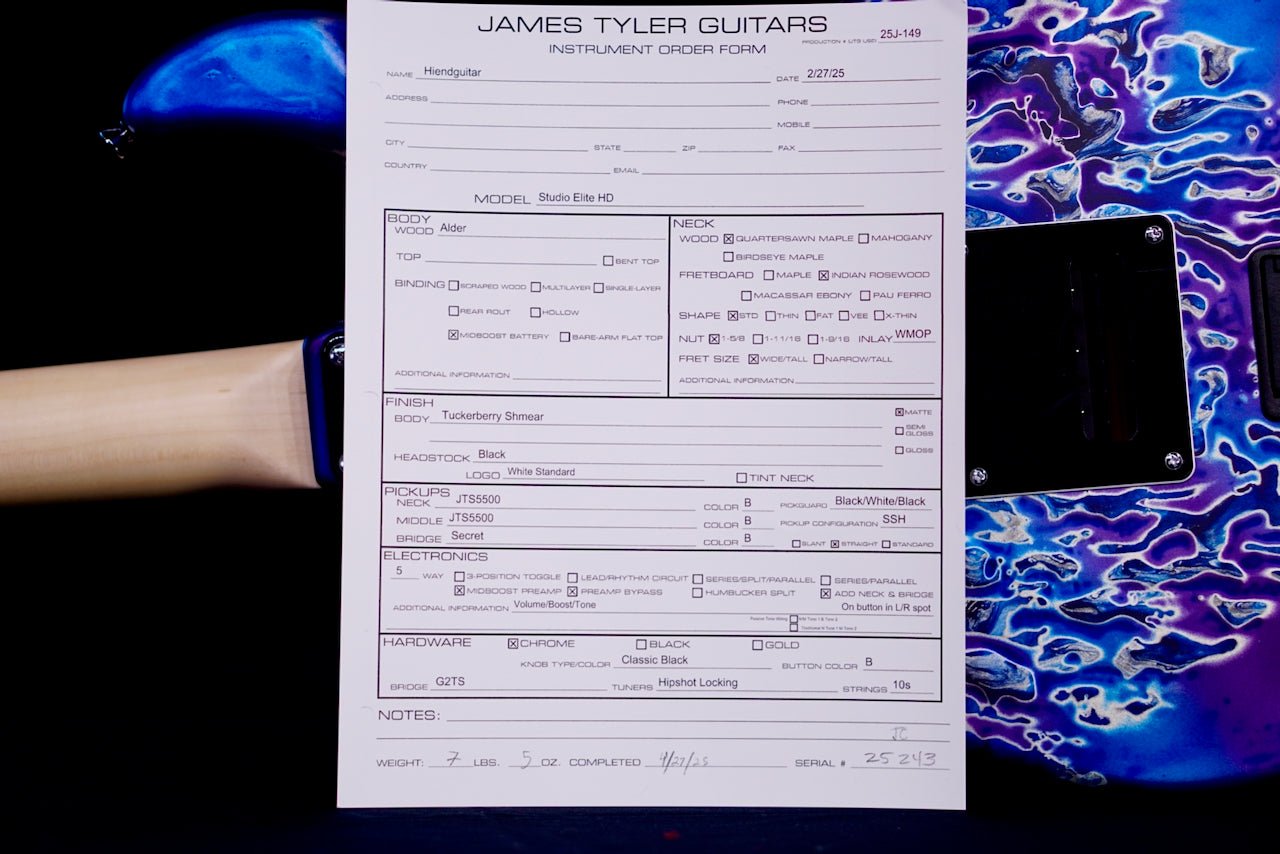 JAMES TYLER GUITARS
PRODUCTION # (JTG USE) 25J-149
INSTRUMENT ORDER FORM
NAME Hiendguitar DATE 2/27/25
ADDRESS PHONE
MOBILE
CITY STATE ZIP FAX
COUNTRY EMAIL
MODEL Studio Elite HD
BODY
WOOD Alder
TOP BENT TOP
BINDING SCRAPED WOOD MULTILAYER SINGLE-LAYER
REAR ROUT HOLLOW
MIDBOOST BATTERY BARE-ARM FLAT TOP
ADDITIONAL INFORMATION
NECK
WOOD QUARTERSAWN MAPLE MAHOGANY
BIRDSEYE MAPLE
FRETBOARD MAPLE INDIAN ROSEWOOD
MACASSAR EBONY PAU FERRO
SHAPE STD THIN FAT VEE X-THIN
NUT 1-5/8 1-11/16 1-9/16 INLAY WMOP
FRET SIZE WIDE/TALL NARROW/TALL
ADDITIONAL INFORMATION
FINISH
BODY Tuckerberry Shmear MATTE
SEMI GLOSS
HEADSTOCK Black GLOSS
LOGO White Standard TINT NECK
PICKUPS
NECK JTS5500 COLOR B PICKGUARD Black/White/Black
MIDDLE JTS5500 COLOR B PICKUP CONFIGURATION SSH
BRIDGE Secret COLOR B SLANT STRAIGHT STANDARD
ELECTRONICS
5 WAY 3-POSITION TOGGLE LEAD/RHYTHM CIRCUIT SERIES/SPLIT/PARALLEL SERIES/PARALLEL
MIDBOOST PREAMP PREAMP BYPASS HUMBUCKER SPLIT ADD NECK & BRIDGE
ADDITIONAL INFORMATION Volume/Boost/Tone On button in L/R spot
Passive Tone Wiring N/M Tone 1 B Tone 2
Traditional N Tone 1 M Tone 2
HARDWARE CHROME BLACK GOLD
KNOB TYPE/COLOR Classic Black BUTTON COLOR B
BRIDGE G2TS TUNERS Hipshot Locking STRINGS 10s
NOTES:
JC
WEIGHT: 7 LBS. 5 OZ. COMPLETED 4/27/25 SERIAL # 25243